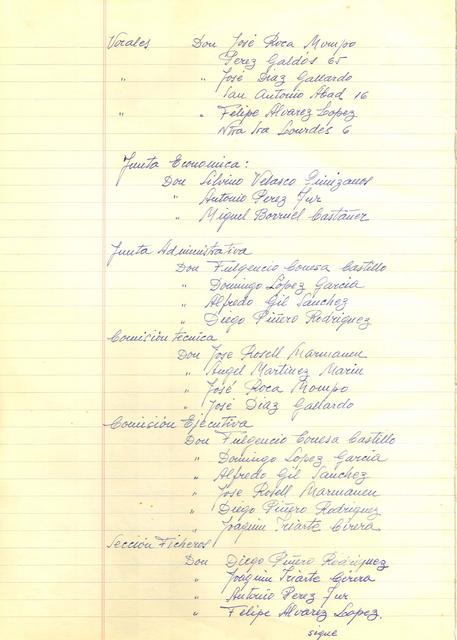 Vocales Don José Roca Mompo
Perez Galdós 65
" " José Diaz Gallardo
San Antonio Abad 16
" " Felipe Alvarez Lopez
Ntra Sra Lourdes 6
Junta Economica:
Don Silvino Velasco Gimizanos
" Antonio Perez Jur
" Miguel Borruel Castañer
Junta Administrativa
Don Fulgencio Conesa Castillo
" Domingo López Garcia
" Alfredo Gil Sánchez
" Diego Piñero Rodriguez
Comisión técnica
Don Jose Rosell Marmaneu
" Angel Martinez Marin
" José Roca Mompo
" José Diaz Gallardo
Comisión Ejecutiva
Don Fulgencio Conesa Castillo
" Domingo Lopez Garcia
" Alfredo Gil Sánchez
" Jose Rosell Marmaneu
" Diego Piñero Rodriguez
" Joaquin Iriarte Cirera
Sección Ficheros
Don Diego Piñero Rodriguez
" Joaquin Iriarte Cirera
" Antonio Perez Jur
" Felipe Alvarez Lopez.
sigue